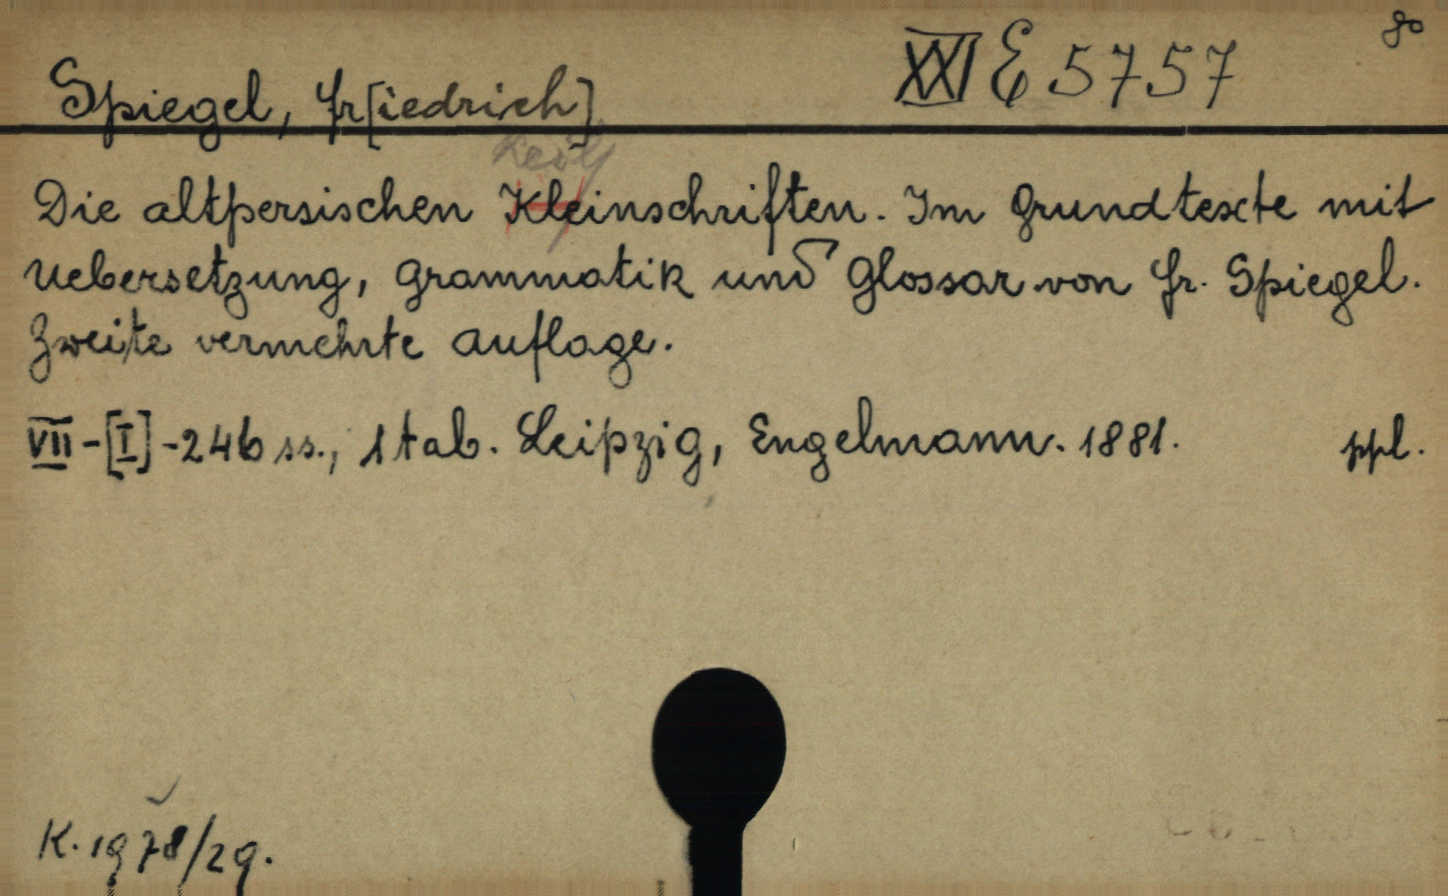 8°
XXI E 5757
Spiegel, Fr[iedrich]
Die altpersischen Kleinschriften. Im Grundtexte mit
Uebersetzung, Grammatik und Glossar von Fr. Spiegel.
Zweite vermehrte Auflage.
VII-[I]-246 ss., 1 tab. Leipzig, Engelmann. 1881. ppl.
K. 1978/29.